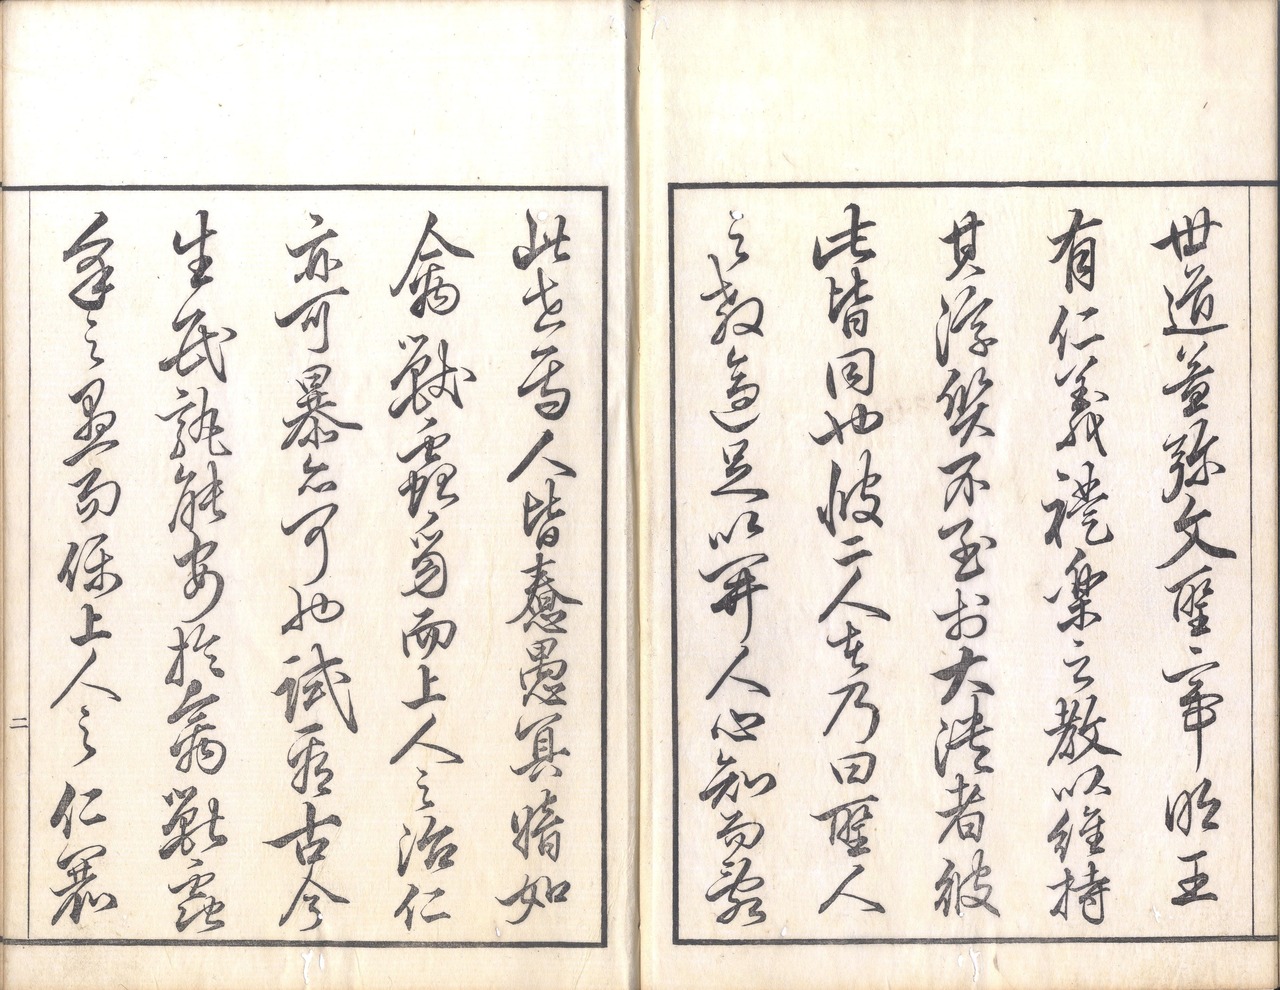 世道益弥文聖帝明王
有仁義禮樂之教以維持
其浮僞不至於大潰者彼
此皆同也彼二人者乃曰聖人
之教適足以開人心知而
此者焉人皆惷愚冥暗如
禽獸蟲豸而上人之治仁
亦可暴亦可也試看古今
生民孰能安於禽獸蟲
豸之愚而保上人之仁
二